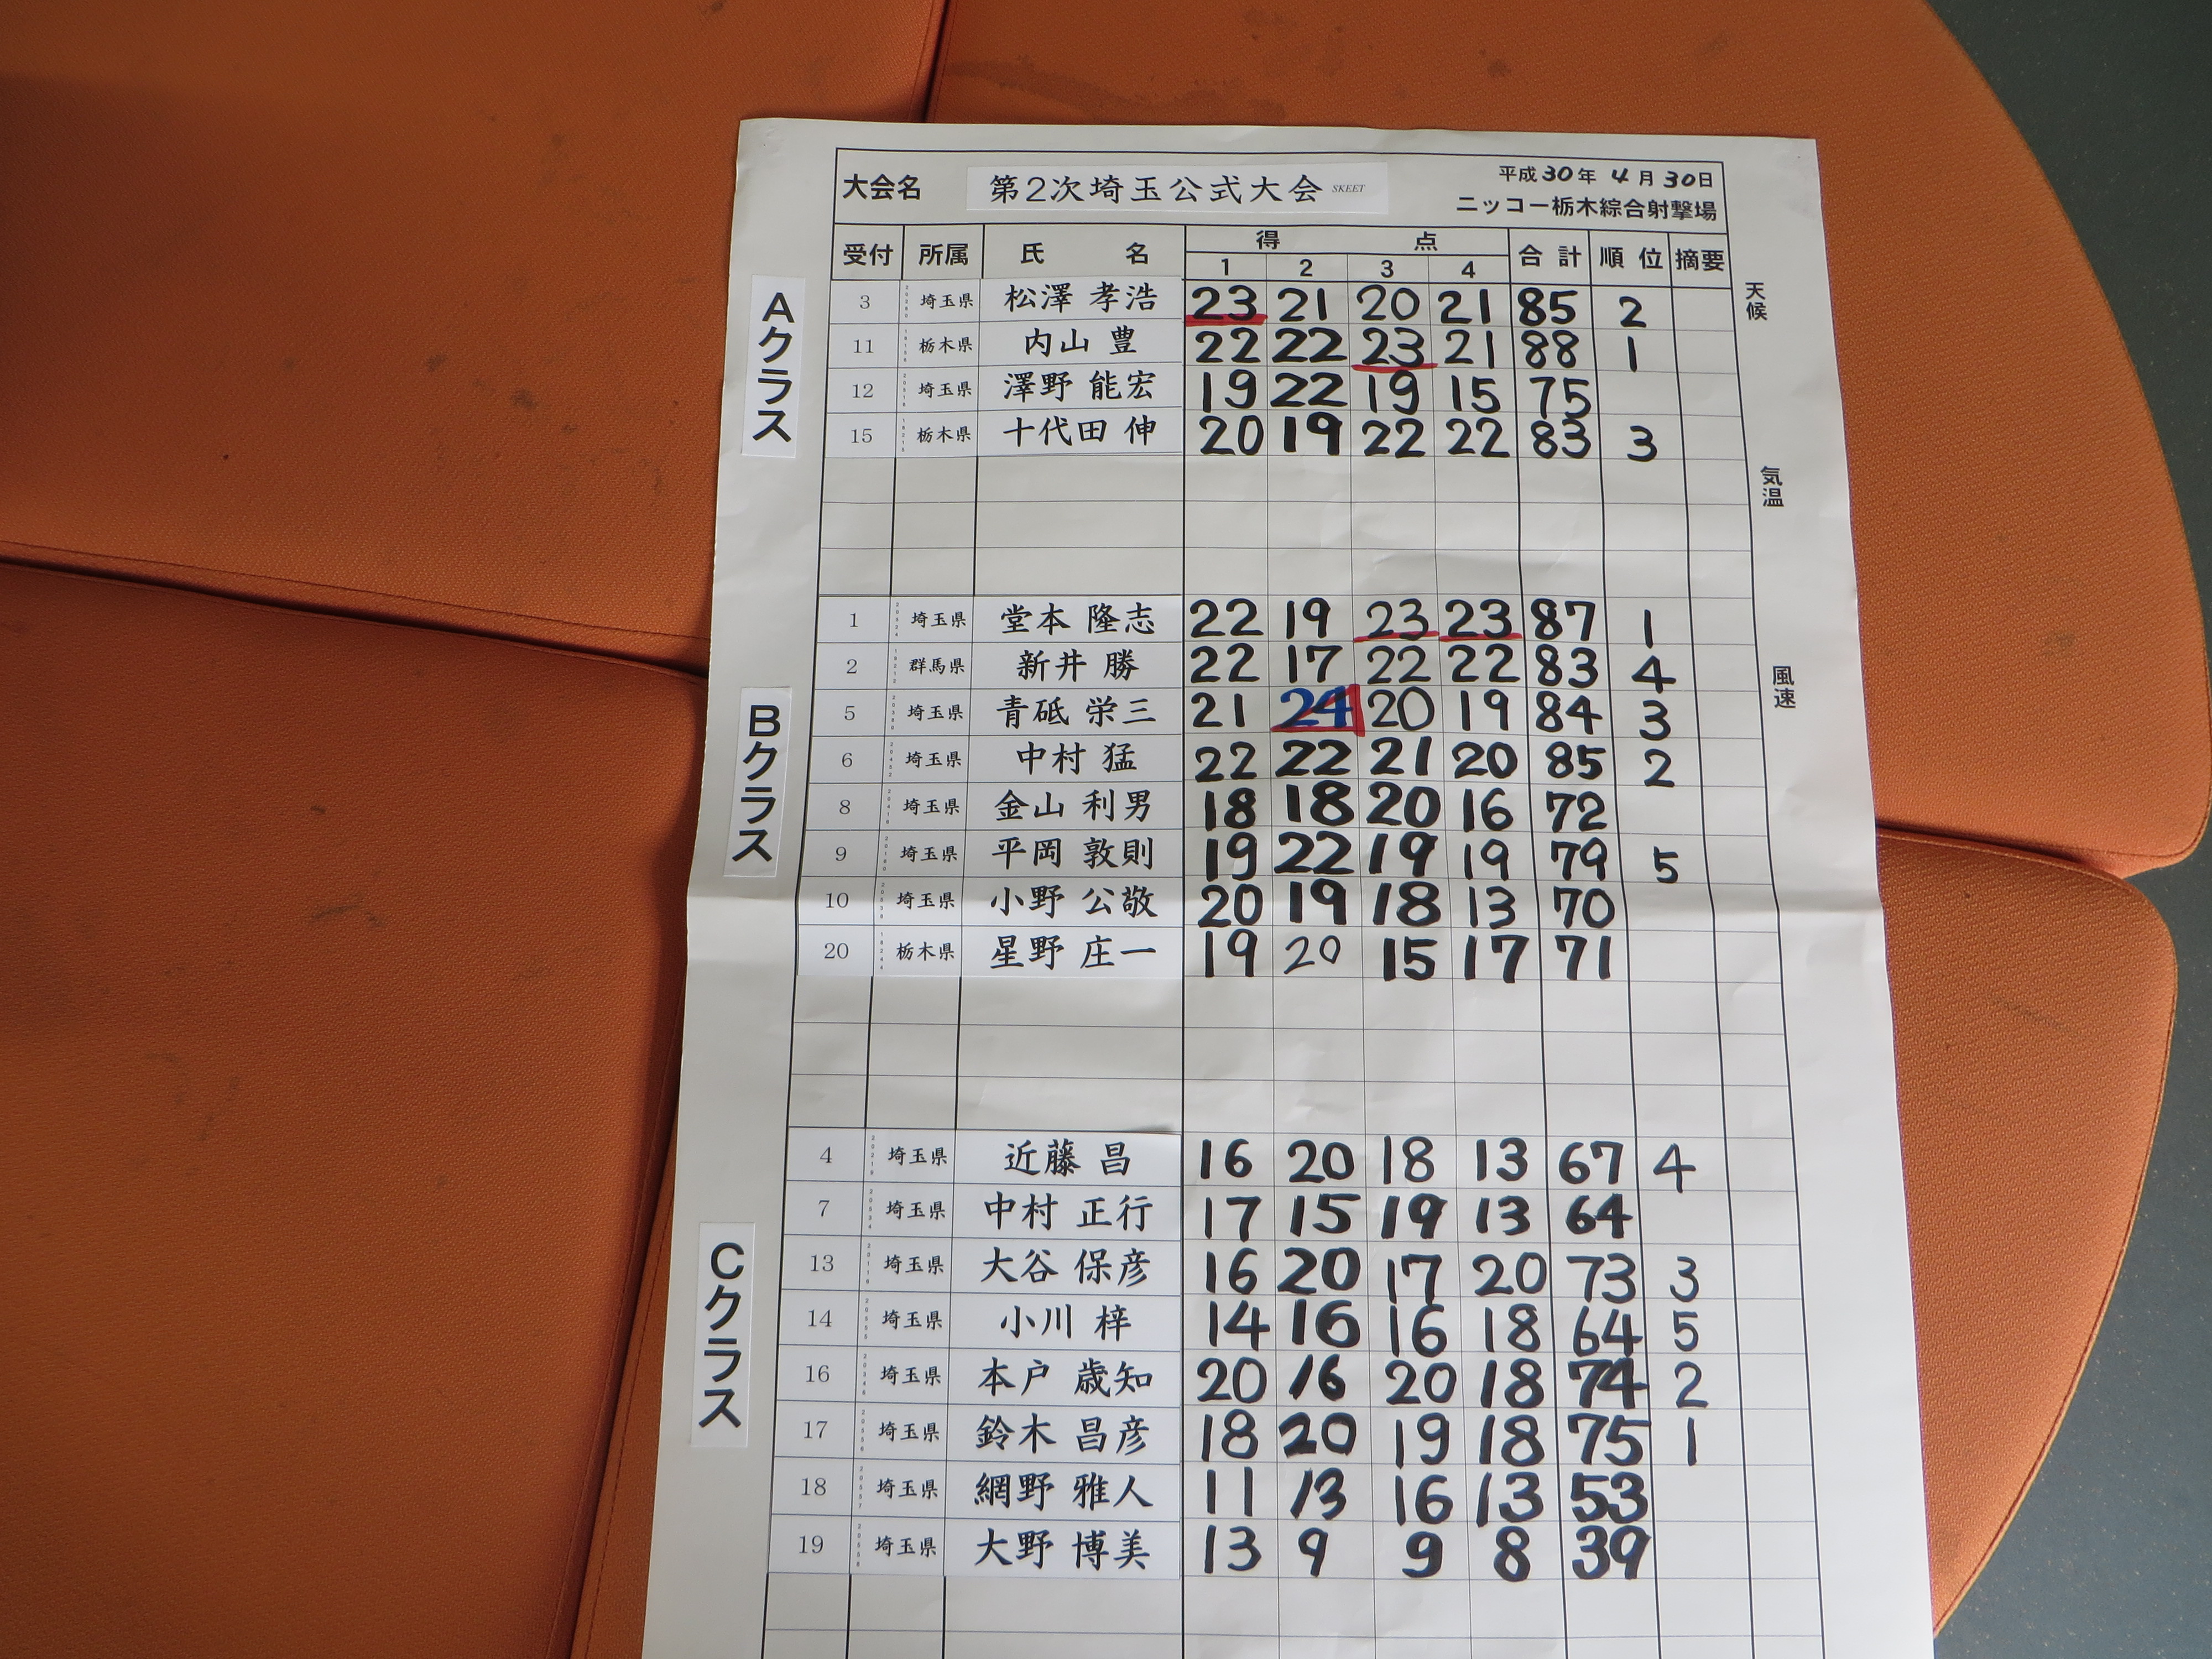 大会名 第2次埼玉公式大会 SKEET 平成30年 4月30日
ニッコー栃木綜合射撃場
受付 所属 氏 名 得 点 合計 順位 摘要
1 2 3 4
天候
気温
風速
Aクラス
3 埼玉県 松澤 孝浩 23 21 20 21 85 2
11 栃木県 内山 豊 22 22 23 21 88 1
12 埼玉県 澤野 能宏 19 22 19 15 75
15 栃木県 十代田 伸 20 19 22 22 83 3
Bクラス
1 埼玉県 堂本 隆志 22 19 23 23 87 1
2 群馬県 新井 勝 22 17 22 22 83 4
5 埼玉県 青砥 栄三 21 24 20 19 84 3
6 埼玉県 中村 猛 22 22 21 20 85 2
8 埼玉県 金山 利男 18 18 20 16 72
9 埼玉県 平岡 敦則 19 22 19 19 79 5
10 埼玉県 小野 公敬 20 19 18 13 70
20 栃木県 星野 庄一 19 20 15 17 71
Cクラス
4 埼玉県 近藤 昌 16 20 18 13 67 4
7 埼玉県 中村 正行 17 15 19 13 64
13 埼玉県 大谷 保彦 16 20 17 20 73 3
14 埼玉県 小川 梓 14 16 16 18 64 5
16 埼玉県 本戸 歳知 20 16 20 18 74 2
17 埼玉県 鈴木 昌彦 18 20 19 18 75 1
18 埼玉県 網野 雅人 11 13 16 13 53
19 埼玉県 大野 博美 13 9 9 8 39